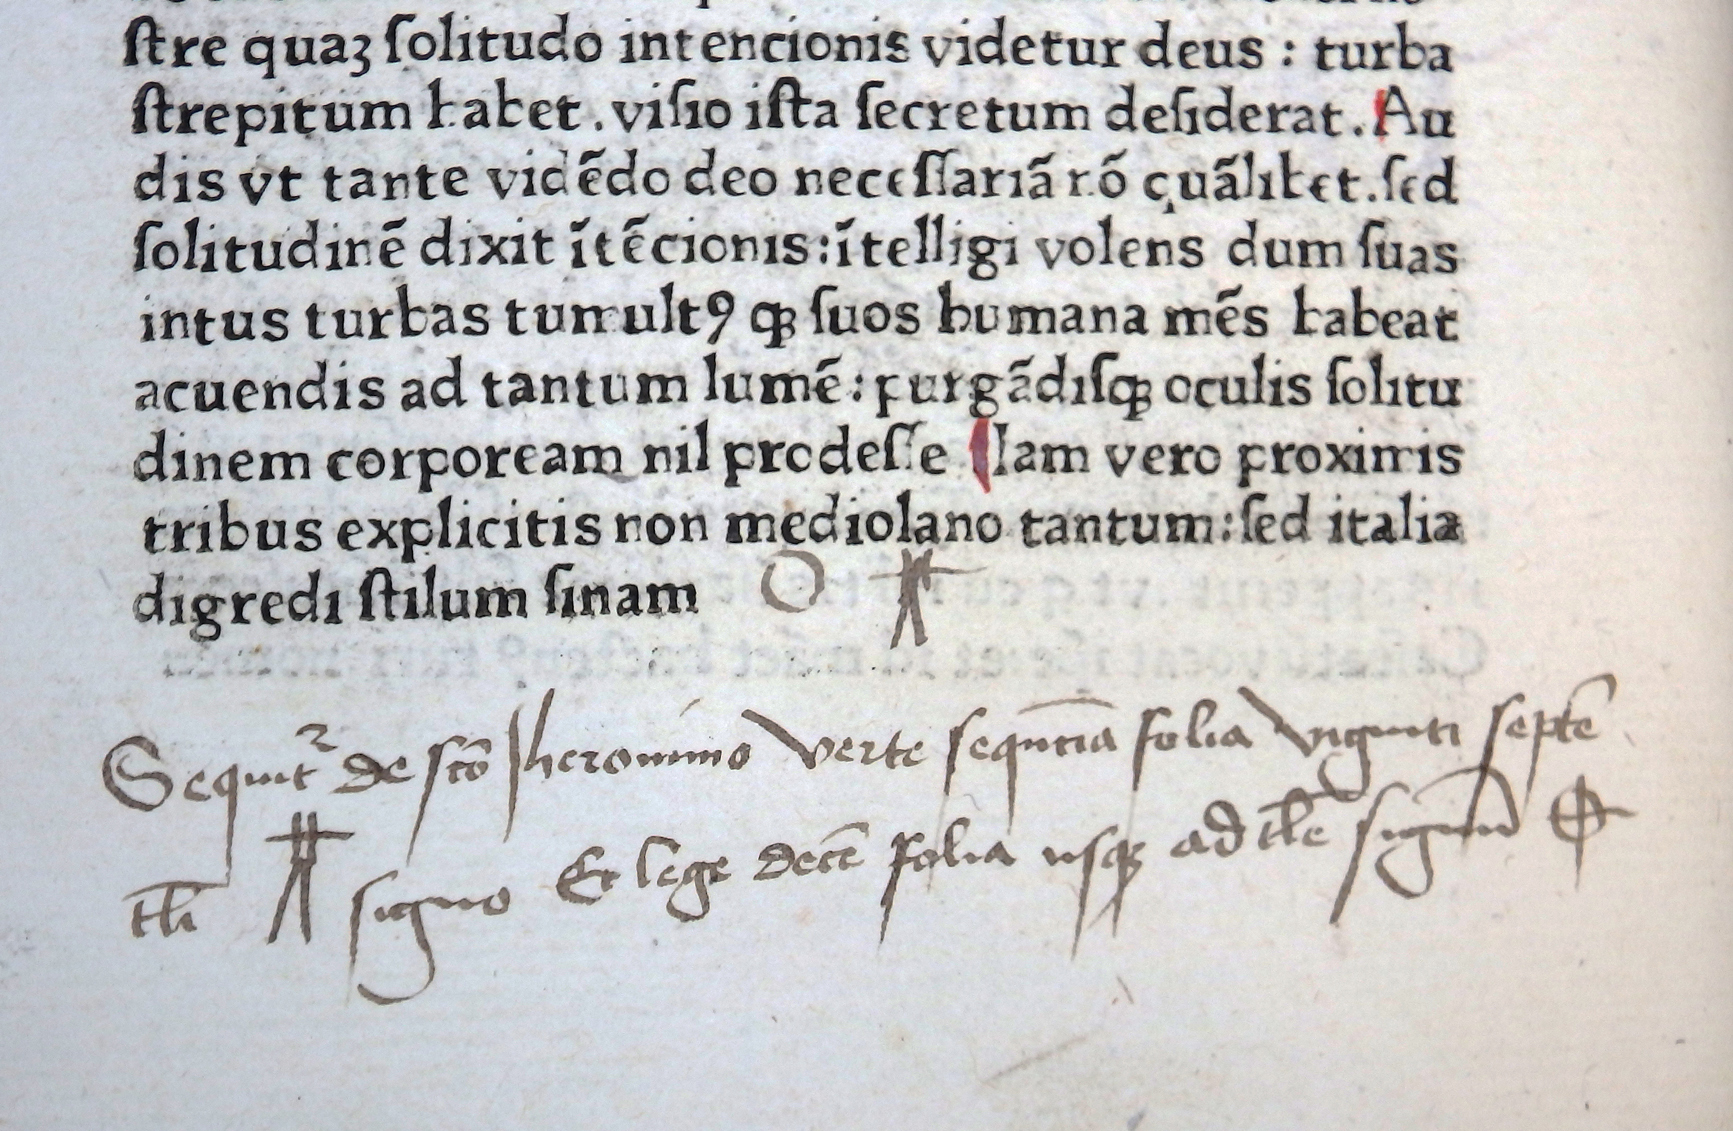 ſtre quaꝫ ſolitudo intencionis videtur deus : turba
ſtrepitum habet . viſio iſta ſecretum deſiderat . Au
dis vt tante vidēdo deo neceſſariā nō quālibet . ſed
ſolitudinē dixit ītēcionis : ītelligi volens dum ſuas
intus turbas tumultꝯ qꝫ ſuos humana mēs habeat
acuendis ad tantum lumē : purgādiſqꝫ oculis ſolitu
dinem corpoream nil prodeſſe Iam vero proximis
tribus explicitis non mediolano tantum : ſed italia
digredi ſtilum ſinam
Sequit᷑ de scō Jheronimo verte sequētia folia viginti septē
tłi signo Et lege decē folia usqꝫ ad tłe signū